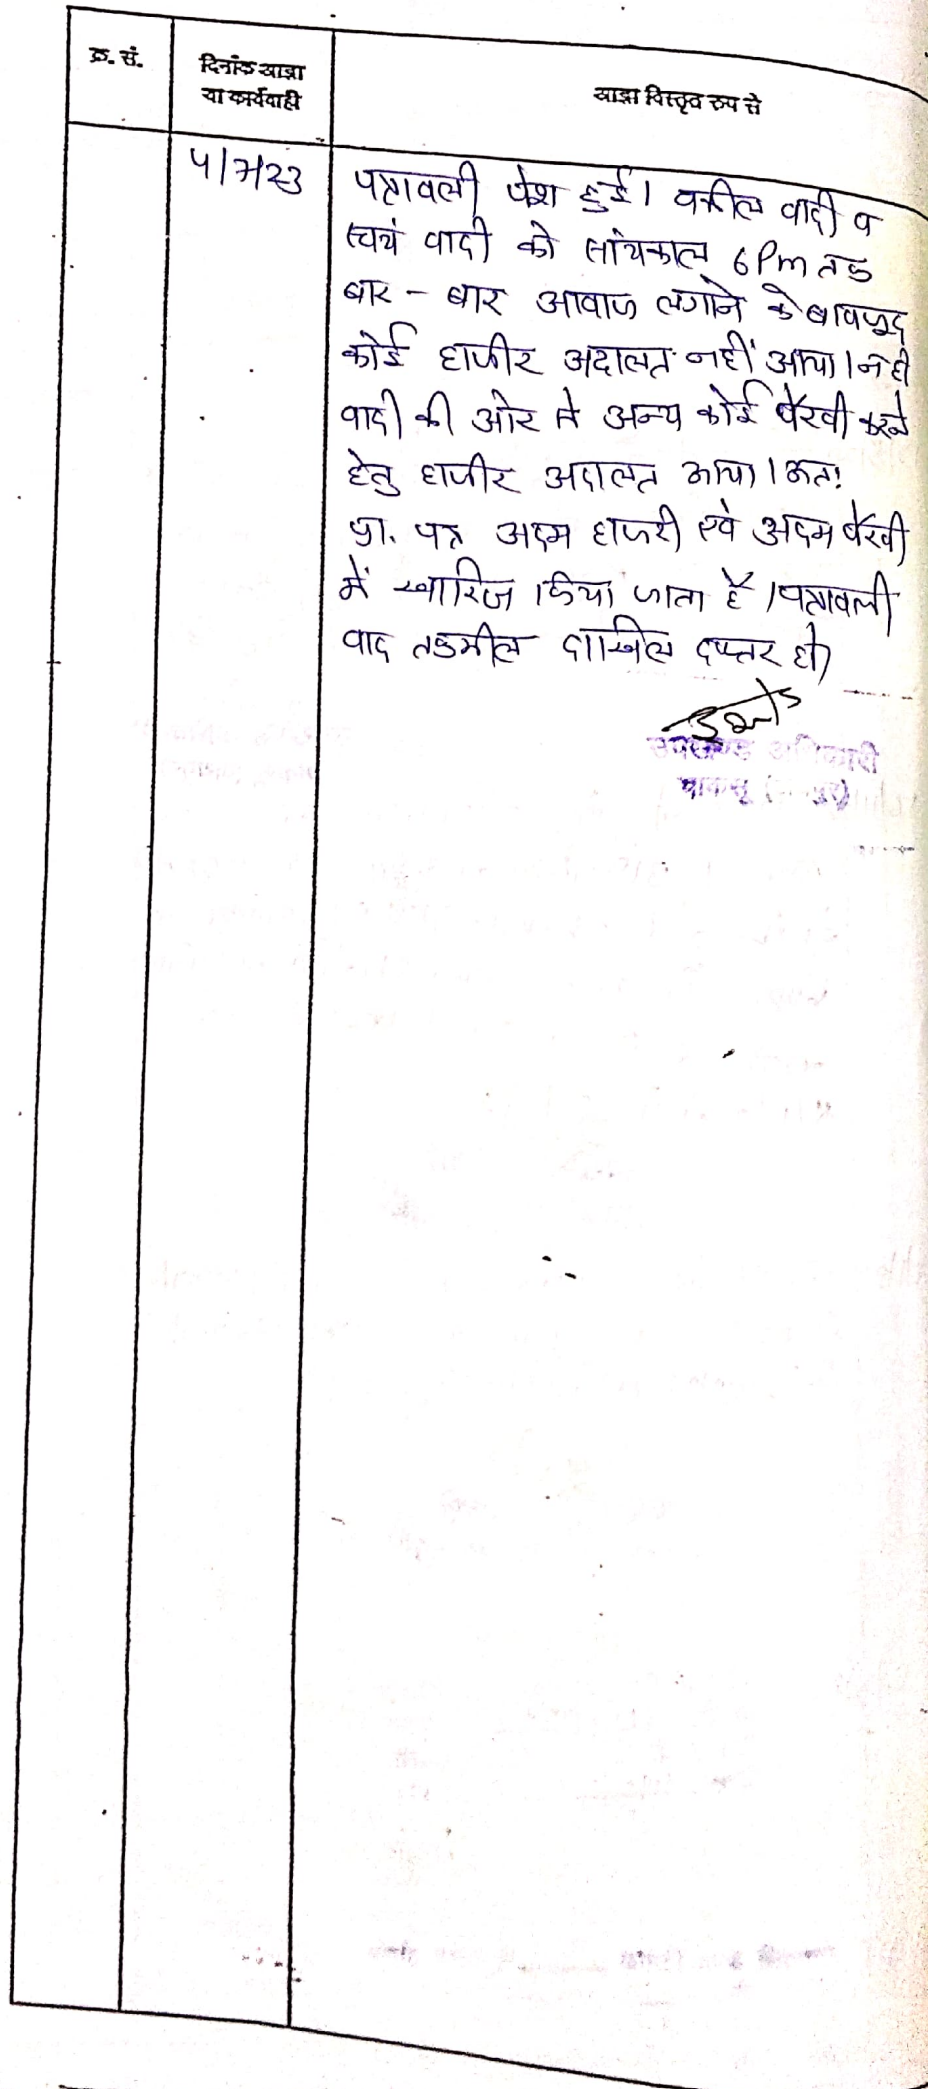 क्र. सं.
दिनांक आज्ञा
या कार्यवाही
आज्ञा विस्तृत रुप से
4/7/23
पत्रावली पेश हुई। वकील वादी व
स्वयं वादी को सांयकाल 6 Pm तक
बार - बार आवाज लगाने के बावजुद
कोई हाजीर अदालत नहीं आया। न ही
वादी की ओर से अन्य कोई पैरवी करने
हेतु हाजीर अदालत आया। अतः
प्रा. पत्र अदम हाजरी एवं अदम पैरवी
में खारिज किया जाता है। पत्रावली
वाद तकमील दाखिल दफ्तर हो
उपखण्ड अधिकारी
चाकसू